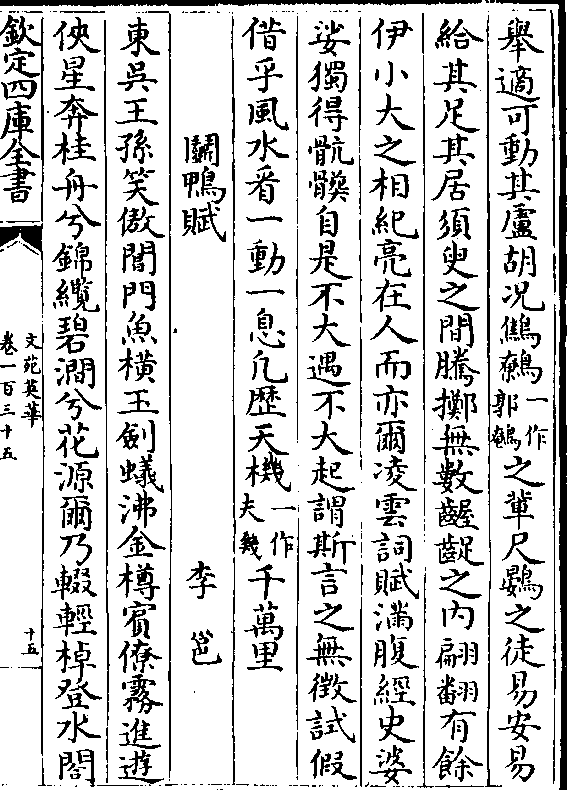 舉適可動其盧胡况鷦鷯一作郭之輩尺鷃之徒易安易
給其足其居須臾之間騰擲無數齷齪之内翩翻有餘
伊小大之相紀亮在人而亦爾凌雲詞賦滿腹經史婆
娑獨得骯髒自是不大遇不大起謂斯言之無徴試假
借乎風水看一動一息凡歷天機一作夫幾千萬里
鬭鴨賦 李邕
東吳王孫笑傲閶門魚横玉劒蟻沸金樽賓僚霧進遊
俠星奔桂舟兮錦纜碧澗兮花源爾乃輟輕棹登水閣
欽定四庫全書
文苑英華
卷一百三十五
十五